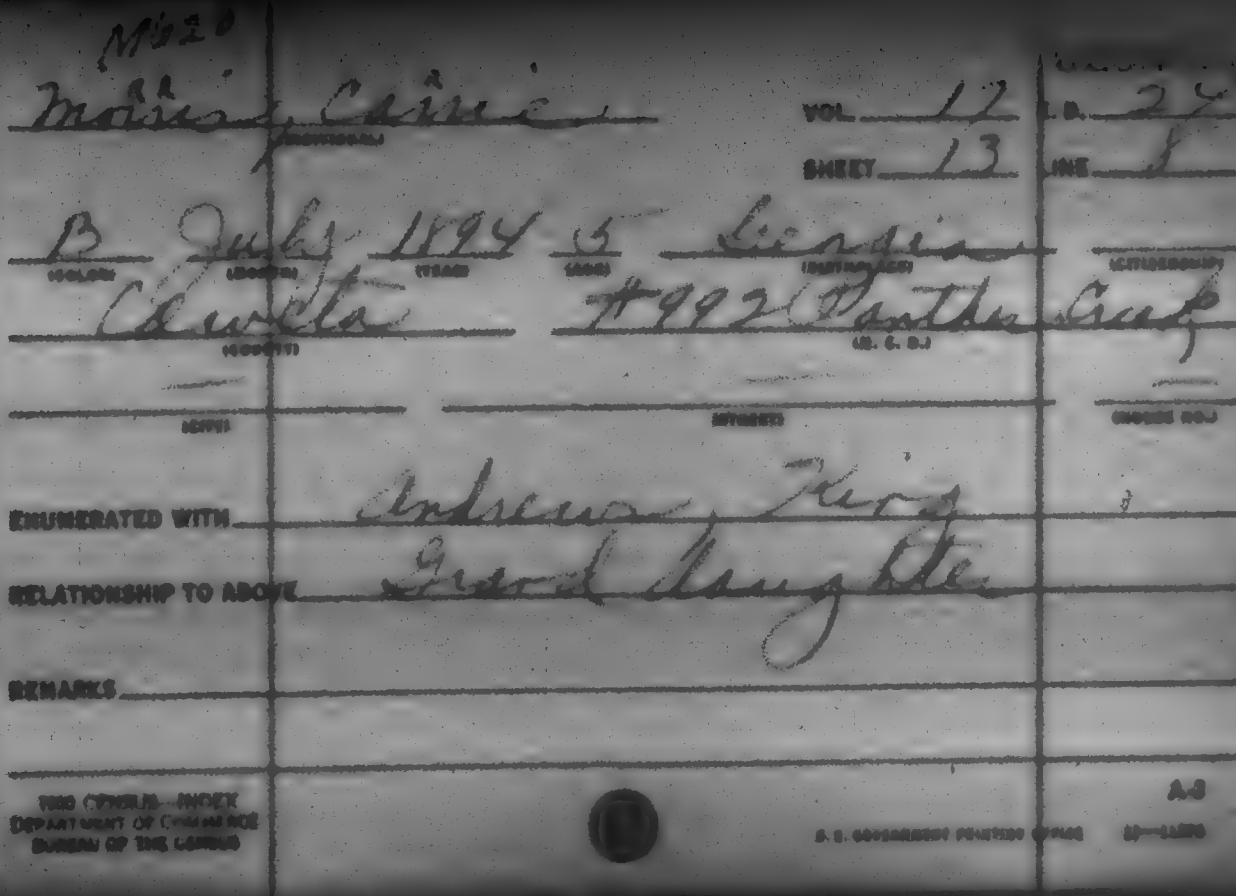 M620
Morris, Carrie VOL. 17 E. D. 24
(INDIVIDUAL)
SHEET 13 LINE 8
B July 1894 5 Georgia
(COLOR) (MONTH) (YEAR) (AGE) (BIRTHPLACE) (CITIZENSHIP)
Coweta #992 Panther Creek
(COUNTY) (M. C. D.)
(CITY) (STREET) (HOUSE NO.)
ENUMERATED WITH Andrew King
RELATIONSHIP TO ABOVE Grand Daughter
REMARKS
1900 CENSUS—INDEX A-3
DEPARTMENT OF COMMERCE
BUREAU OF THE CENSUS U. S. GOVERNMENT PRINTING OFFICE